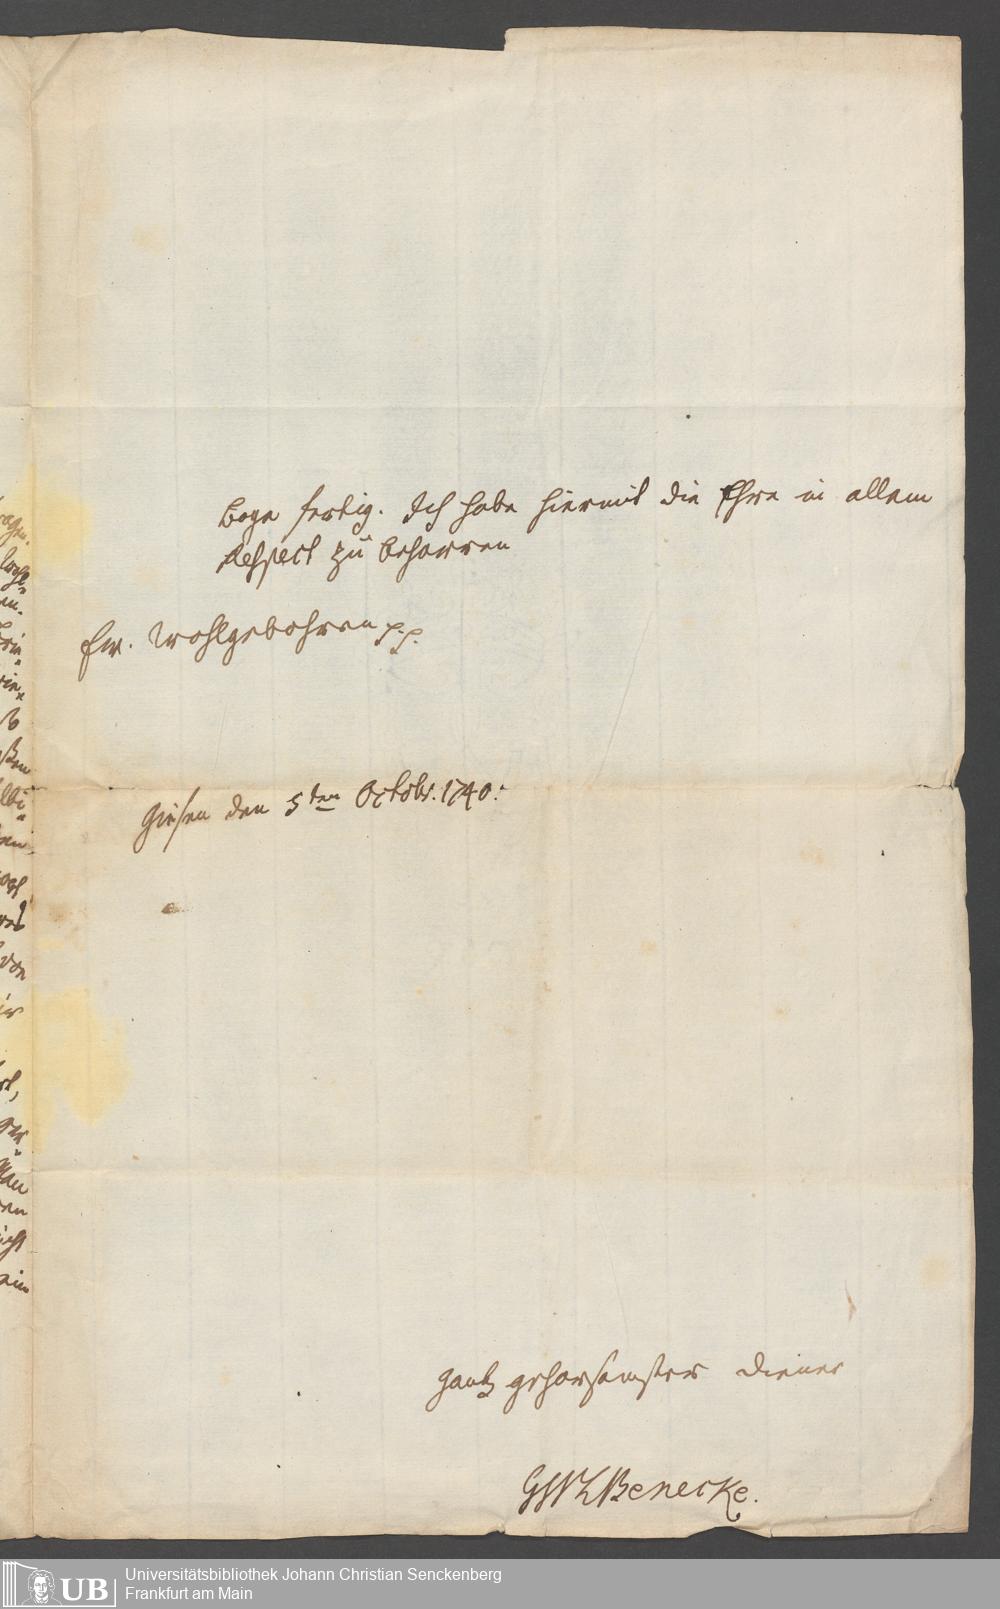 boge fertig. Ich habe hiermit die Ehre in allem
Respect zu beharren
Ew. Wohlgebohren p. p.
Giesen den 5ten Octobr. 1740.
gantz gehorsamster Diener
Benecke.
UB
Universitätsbibliothek Johann Christian Senckenberg
Frankfurt am Main